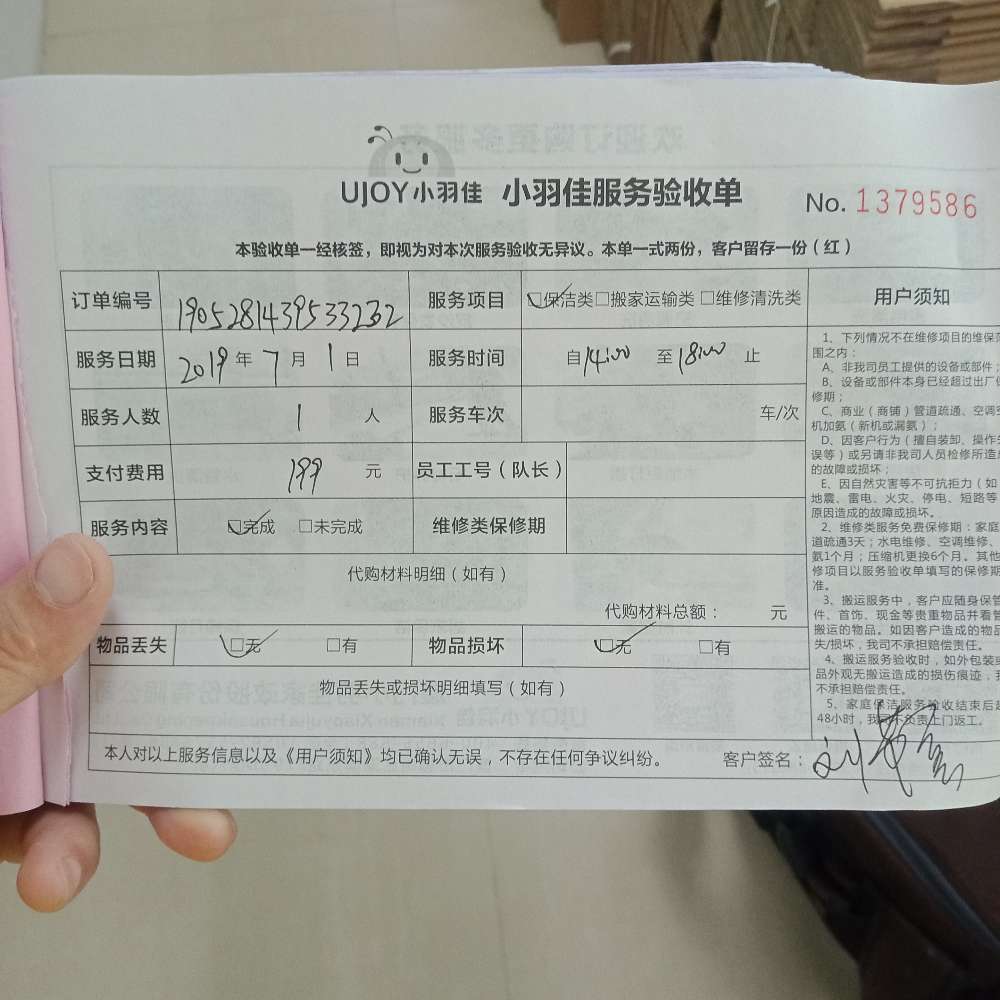 UJOY小羽佳 小羽佳服务验收单 No. 1379586
本验收单一经核签，即视为对本次服务验收无异议。本单一式两份，客户留存一份（红）
订单编号 1905281439533232 服务项目 ☑保洁类□搬家运输类□维修清洗类
服务日期 2019年7月1日 服务时间 自14:00至18:00止
服务人数 1人 服务车次 车/次
支付费用 199元 员工工号（队长）
服务内容 ☑完成 □未完成 维修类保修期
代购材料明细（如有）
代购材料总额： 元
物品丢失 ☑无 □有 物品损坏 ☑无 □有
物品丢失或损坏明细填写（如有）
本人对以上服务信息以及《用户须知》均已确认无误，不存在任何争议纠纷。 客户签名：
用户须知
1、下列情况不在维修项目的维保范
围之内：
A、非我司员工提供的设备或部件；
B、设备或部件本身已经超过出厂保
修期；
C、商业（商铺）管道疏通、空调空
机加氨（新机或漏氨）；
D、因客户行为（擅自装卸、操作失
误等）或另请非我司人员检修所造成
的故障或损坏；
E、因自然灾害等不可抗拒力（如
地震、雷电、火灾、停电、短路等）
原因造成的故障或损坏。
2、维修类服务免费保修期：家庭
道疏通3天；水电维修、空调维修、
氨1个月；压缩机更换6个月。其他
修项目以服务验收单填写的保修期
准。
3、搬运服务中，客户应随身保管
件、首饰、现金等贵重物品并看管
搬运的物品。如因客户造成的物品
失/损坏，我司不承担赔偿责任。
4、搬运服务验收时，如外包装或
品外观无搬运造成的损伤痕迹，我
不承担赔偿责任。
5、家庭保洁服务验收结束后超
48小时，我司不负责上门返工。